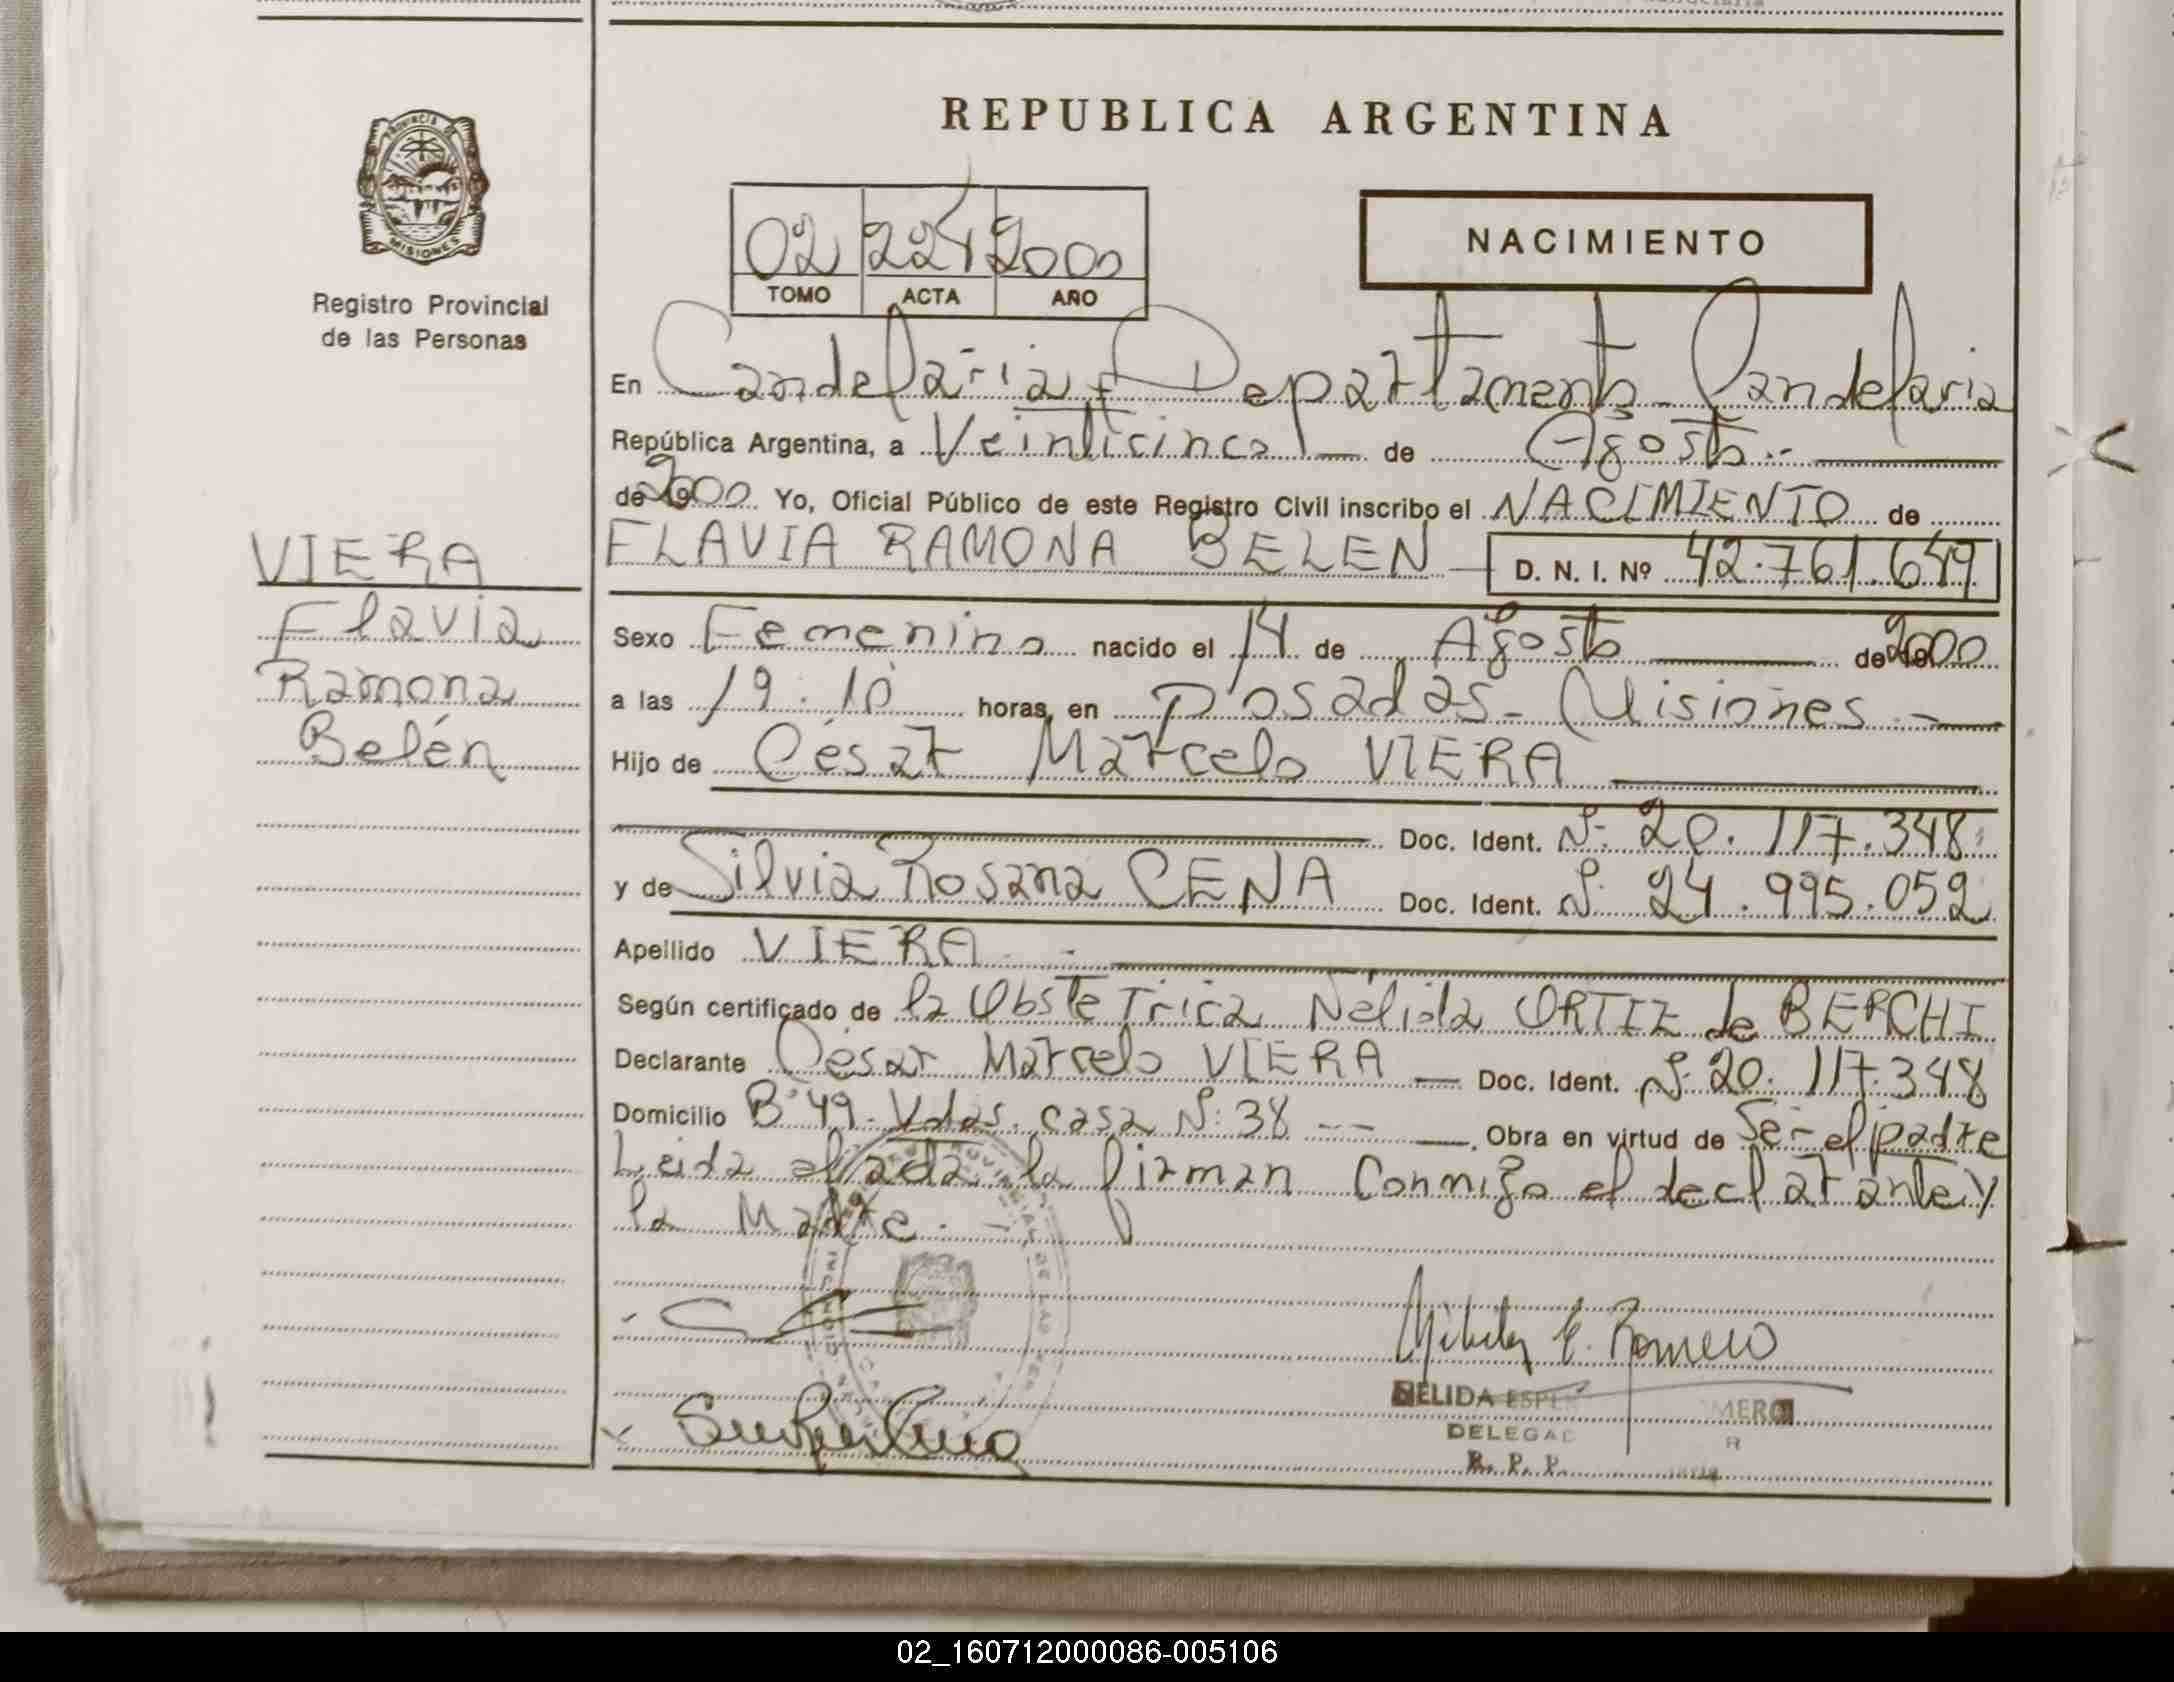 REPUBLICA ARGENTINA
PROVINCIA DE MISIONES
Registro Provincial
de las Personas
02 224 2000
TOMO ACTA AÑO
NACIMIENTO
En Candelaria, Departamento Candelaria
República Argentina, a Veinticinco de Agosto.-
de 2000 Yo, Oficial Público de este Registro Civil inscribo el NACIMIENTO de
FLAVIA RAMONA BELEN D. N. I. Nº 42.761.649
VIERA
Flavia
Ramona
Belén
Sexo Femenino nacido el 14 de Agosto de 2000
a las 19:10 horas, en Posadas - Misiones.-
Hijo de César Marcelo VIERA
Doc. Ident. Nº 20.117.348
y de Silvia Rosana CENA Doc. Ident. Nº 24.995.052
Apellido VIERA.-
Según certificado de la Obstetrica Nélida ORTIZ de BERCHI
Declarante César Marcelo VIERA Doc. Ident. Nº 20.117.348
Domicilio Bº 49. Vdas. casa Nº: 38 Obra en virtud de Ser el padre
Leida el acta la firman conmigo el declarante y
la Madre.-
NELIDA ESPE MERO
DELEGAD R
R. P. P.
02_160712000086-005106